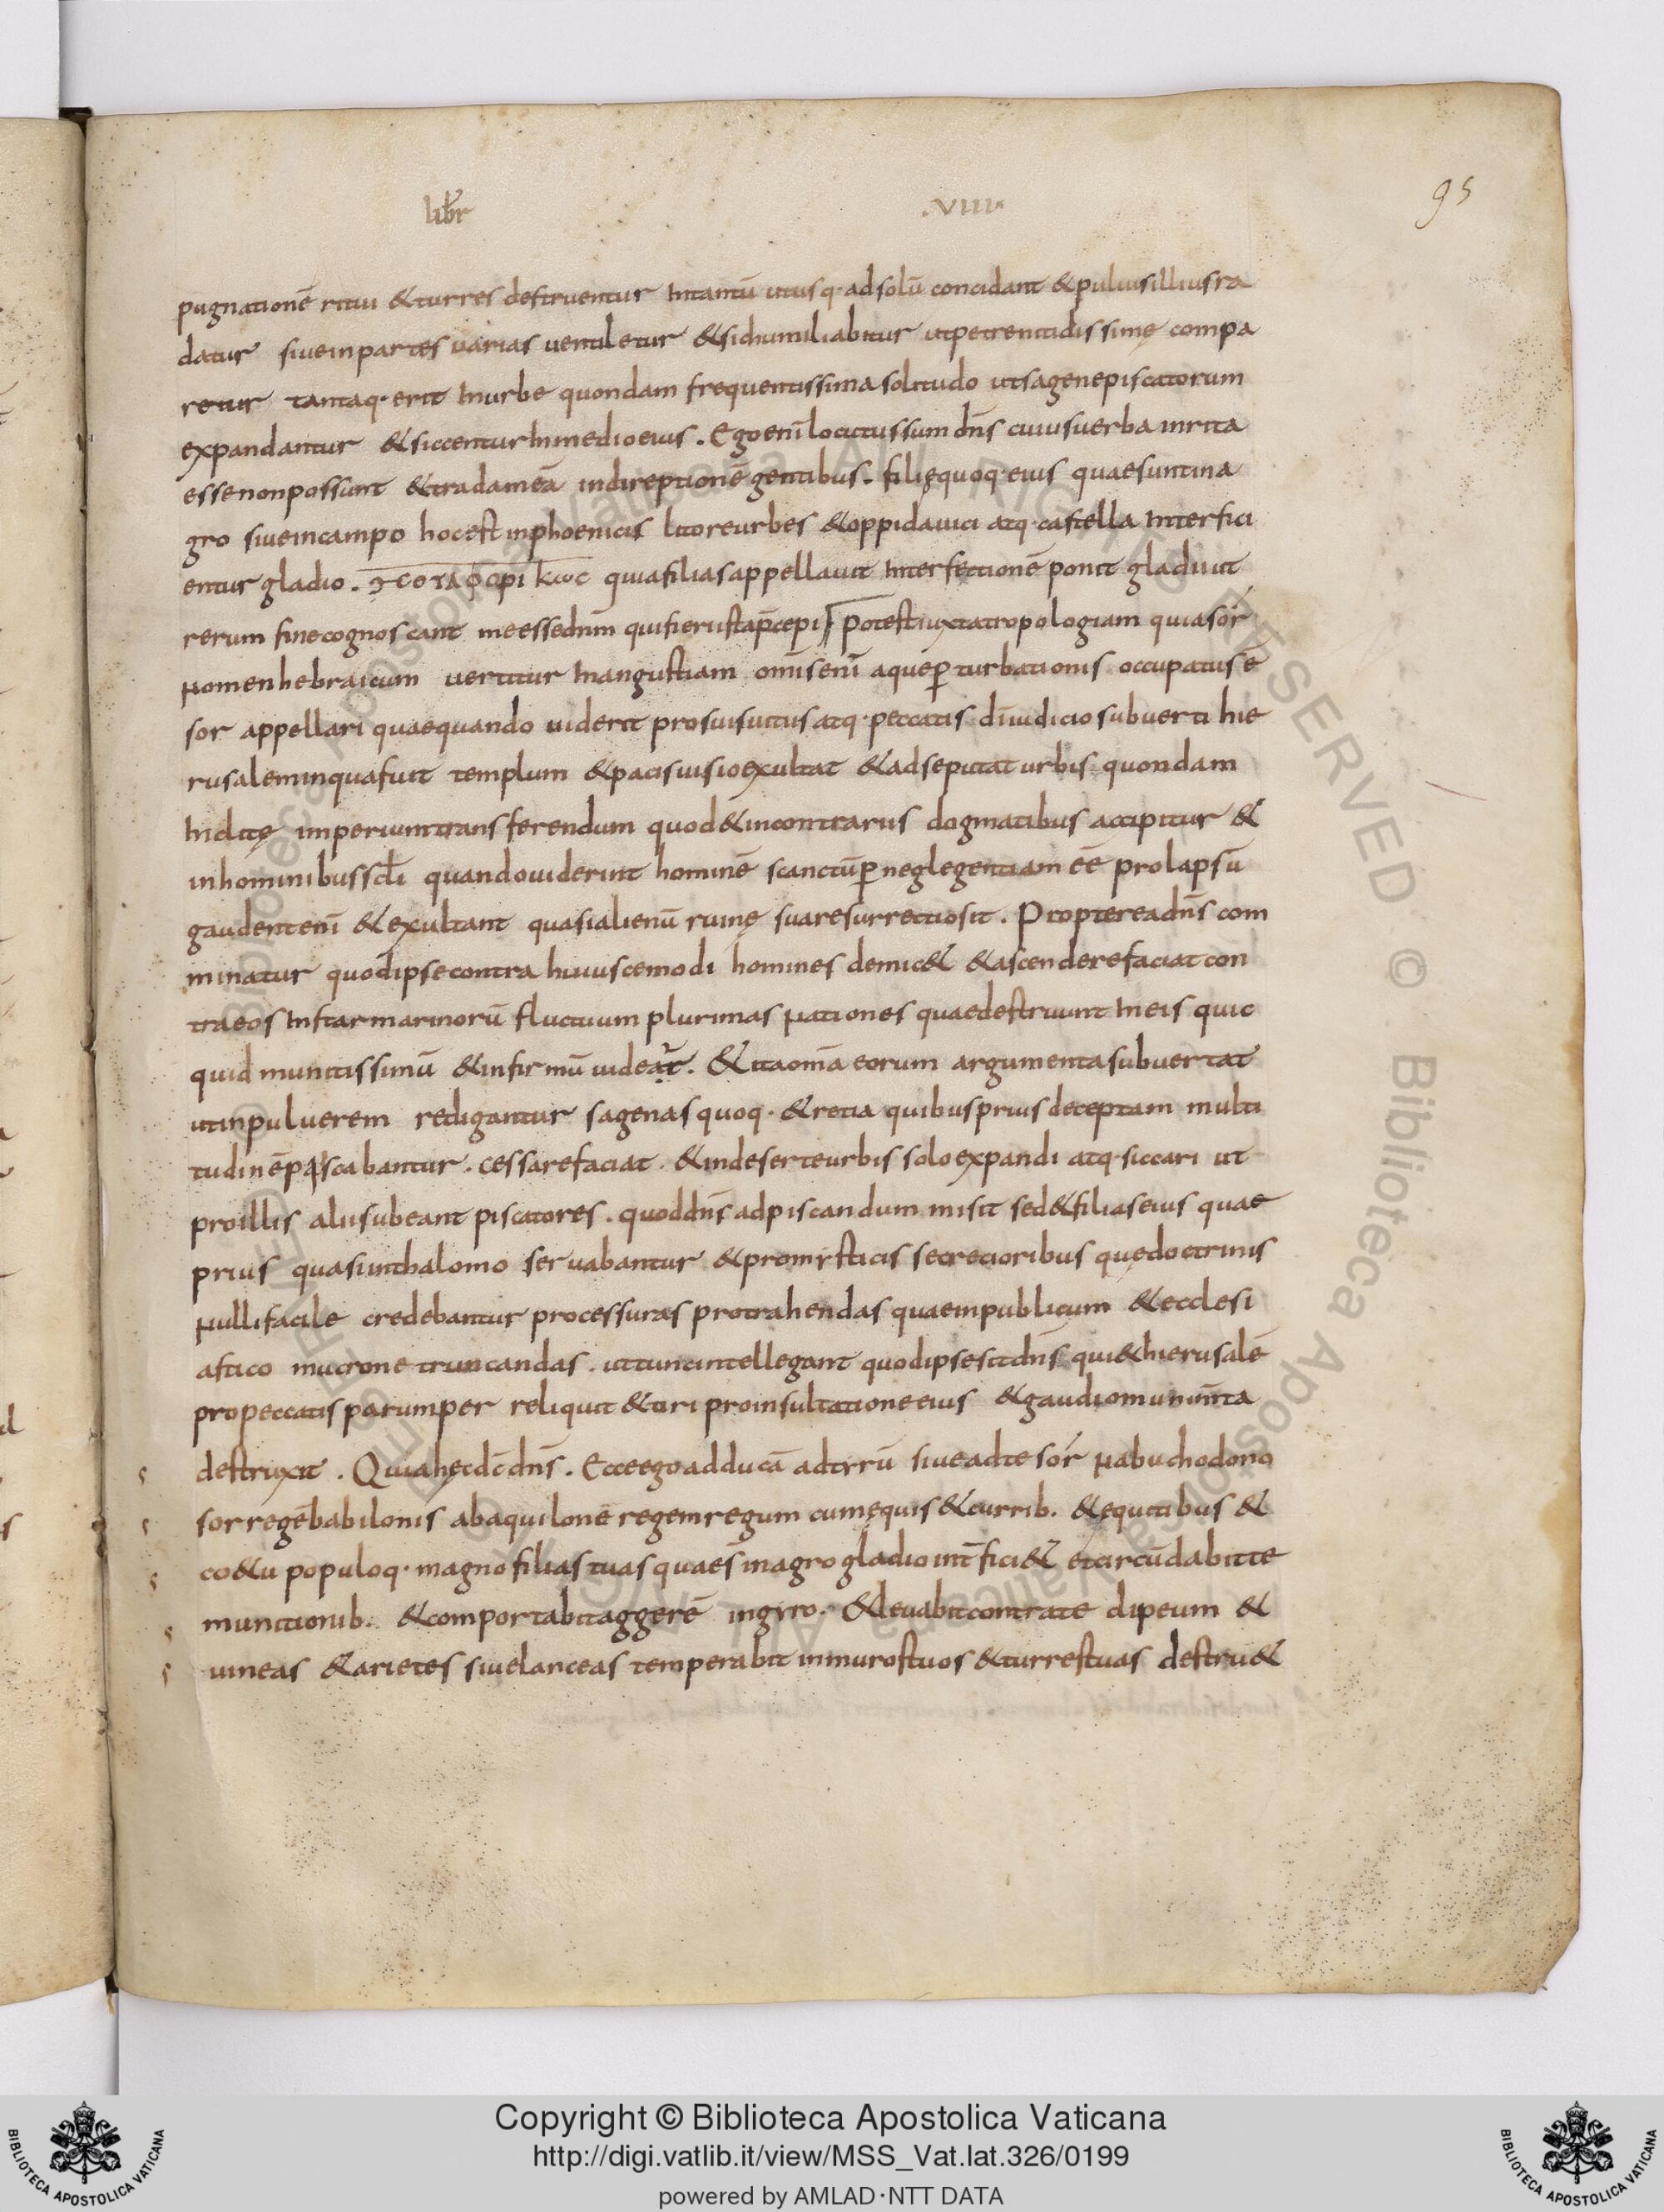 libr̄ .VIIII.
95
pugnationē ritui &turres destruentur Intantū utusq· adsolū concidant &puluisilliusra
datur siueinpartes uarias uentiletur &sichumiliabitur utpetrenitidissimę compa
retur tantaq· erit Inurbe quondam frequentissima solitudo utsagenepiscatorum
expandantur &siccenturInmedioeius. Egoenī locutussum dn̄s cuiusuerba inrita
essenonpossunt &tradameā indireptionē gentibus. filięquoq· eius quaesuntina
gro siueincampo hocest inphoenicis litoreurbes &oppidauici atq· castella Interfici
entur gladio. quiafiliasappellauit Interfectionē ponit gladii ut
rerum finecognoscant meessedn̄m quifieriistap̄cepi potestiuxtatropologiam quiasór
nomenhebraicum uertitur Inangustiam omīsenī aqueꝑturbationis occupatusē
sor appellari quaequando uiderit prosuisuitiis atq· peccatis dīiudicio subuerti hie
rusaleminquafuit templum &pacisuisioexultat &adseputat urbis quondam
Inclitę imperiumtransferendum quod&incontrariis dogmatibus accipitur &
inhominibusscl̄i quandouiderint hominē scanctūꝑneglegentiam eē prolapsū
gaudentenī &exultant quasialienū ruinę suaresurrectiosit. Proptereadn̄s com
minatur quodipsecontra huiuscemodi homines demic& &ascenderefaciatcon
traeos Instarmarinorū fluctuum plurimas nationes quaedestruunt Ineis quic
quid munitissimū &infirmū uideat̄. &itaom̄a eorum argumentasubuertat
utinpuluerem redigantur sagenasquoq· &retia quibusprius deceptam multi
tudinēpascabantur. cessarefaciat. &indeserteurbis soloexpandi atq· siccari ut
proillis aliisubeant piscatores. quoddn̄s adpiscandum misit sed&filiaseius quae
prius quasiinthalomo seruabantur &promysticis secretioribus quędoctrinis
nullifacile credebantur processuras protrahendas quaeinpublicum &ecclesi
astico mucrone truncandas. uttuncintellegant quodipsesitdn̄s qui&hierusalē
propeccatis parumper reliquit &tiri proinsultationeeius &gaudiomunimta
destruxit. Quiahęcdc̄dn̄s. Ecceegoadducā adtyrū siueadtesór nabuchodono
sorregēbabilonis abaquilone regemregum cumęquis &currib. &equitibus &
co&u populoq· magno filiastuas quaes̄inagro gladioint̄fici& etcircūdabitte
munitionib. &comportabitaggerē ingyro. &leuabitcontrate clipeum &
uineas &arietes siuelanceas temperabit inmurostuos &turrestuas destru&
Copyright © Biblioteca Apostolica Vaticana
http://digi.vatlib.it/view/MSS_Vat.lat.326/0199
powered by AMLAD·NTT DATA